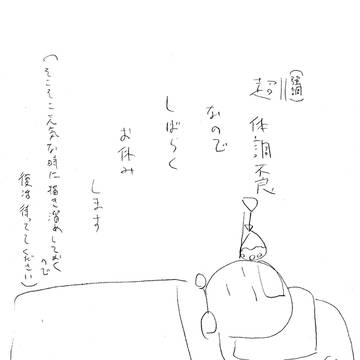 (強調)
超体調不良
なので
しばらく
お休み
します
(そこそこ元気な時に描き溜めしておく
ので
後は待っててください)